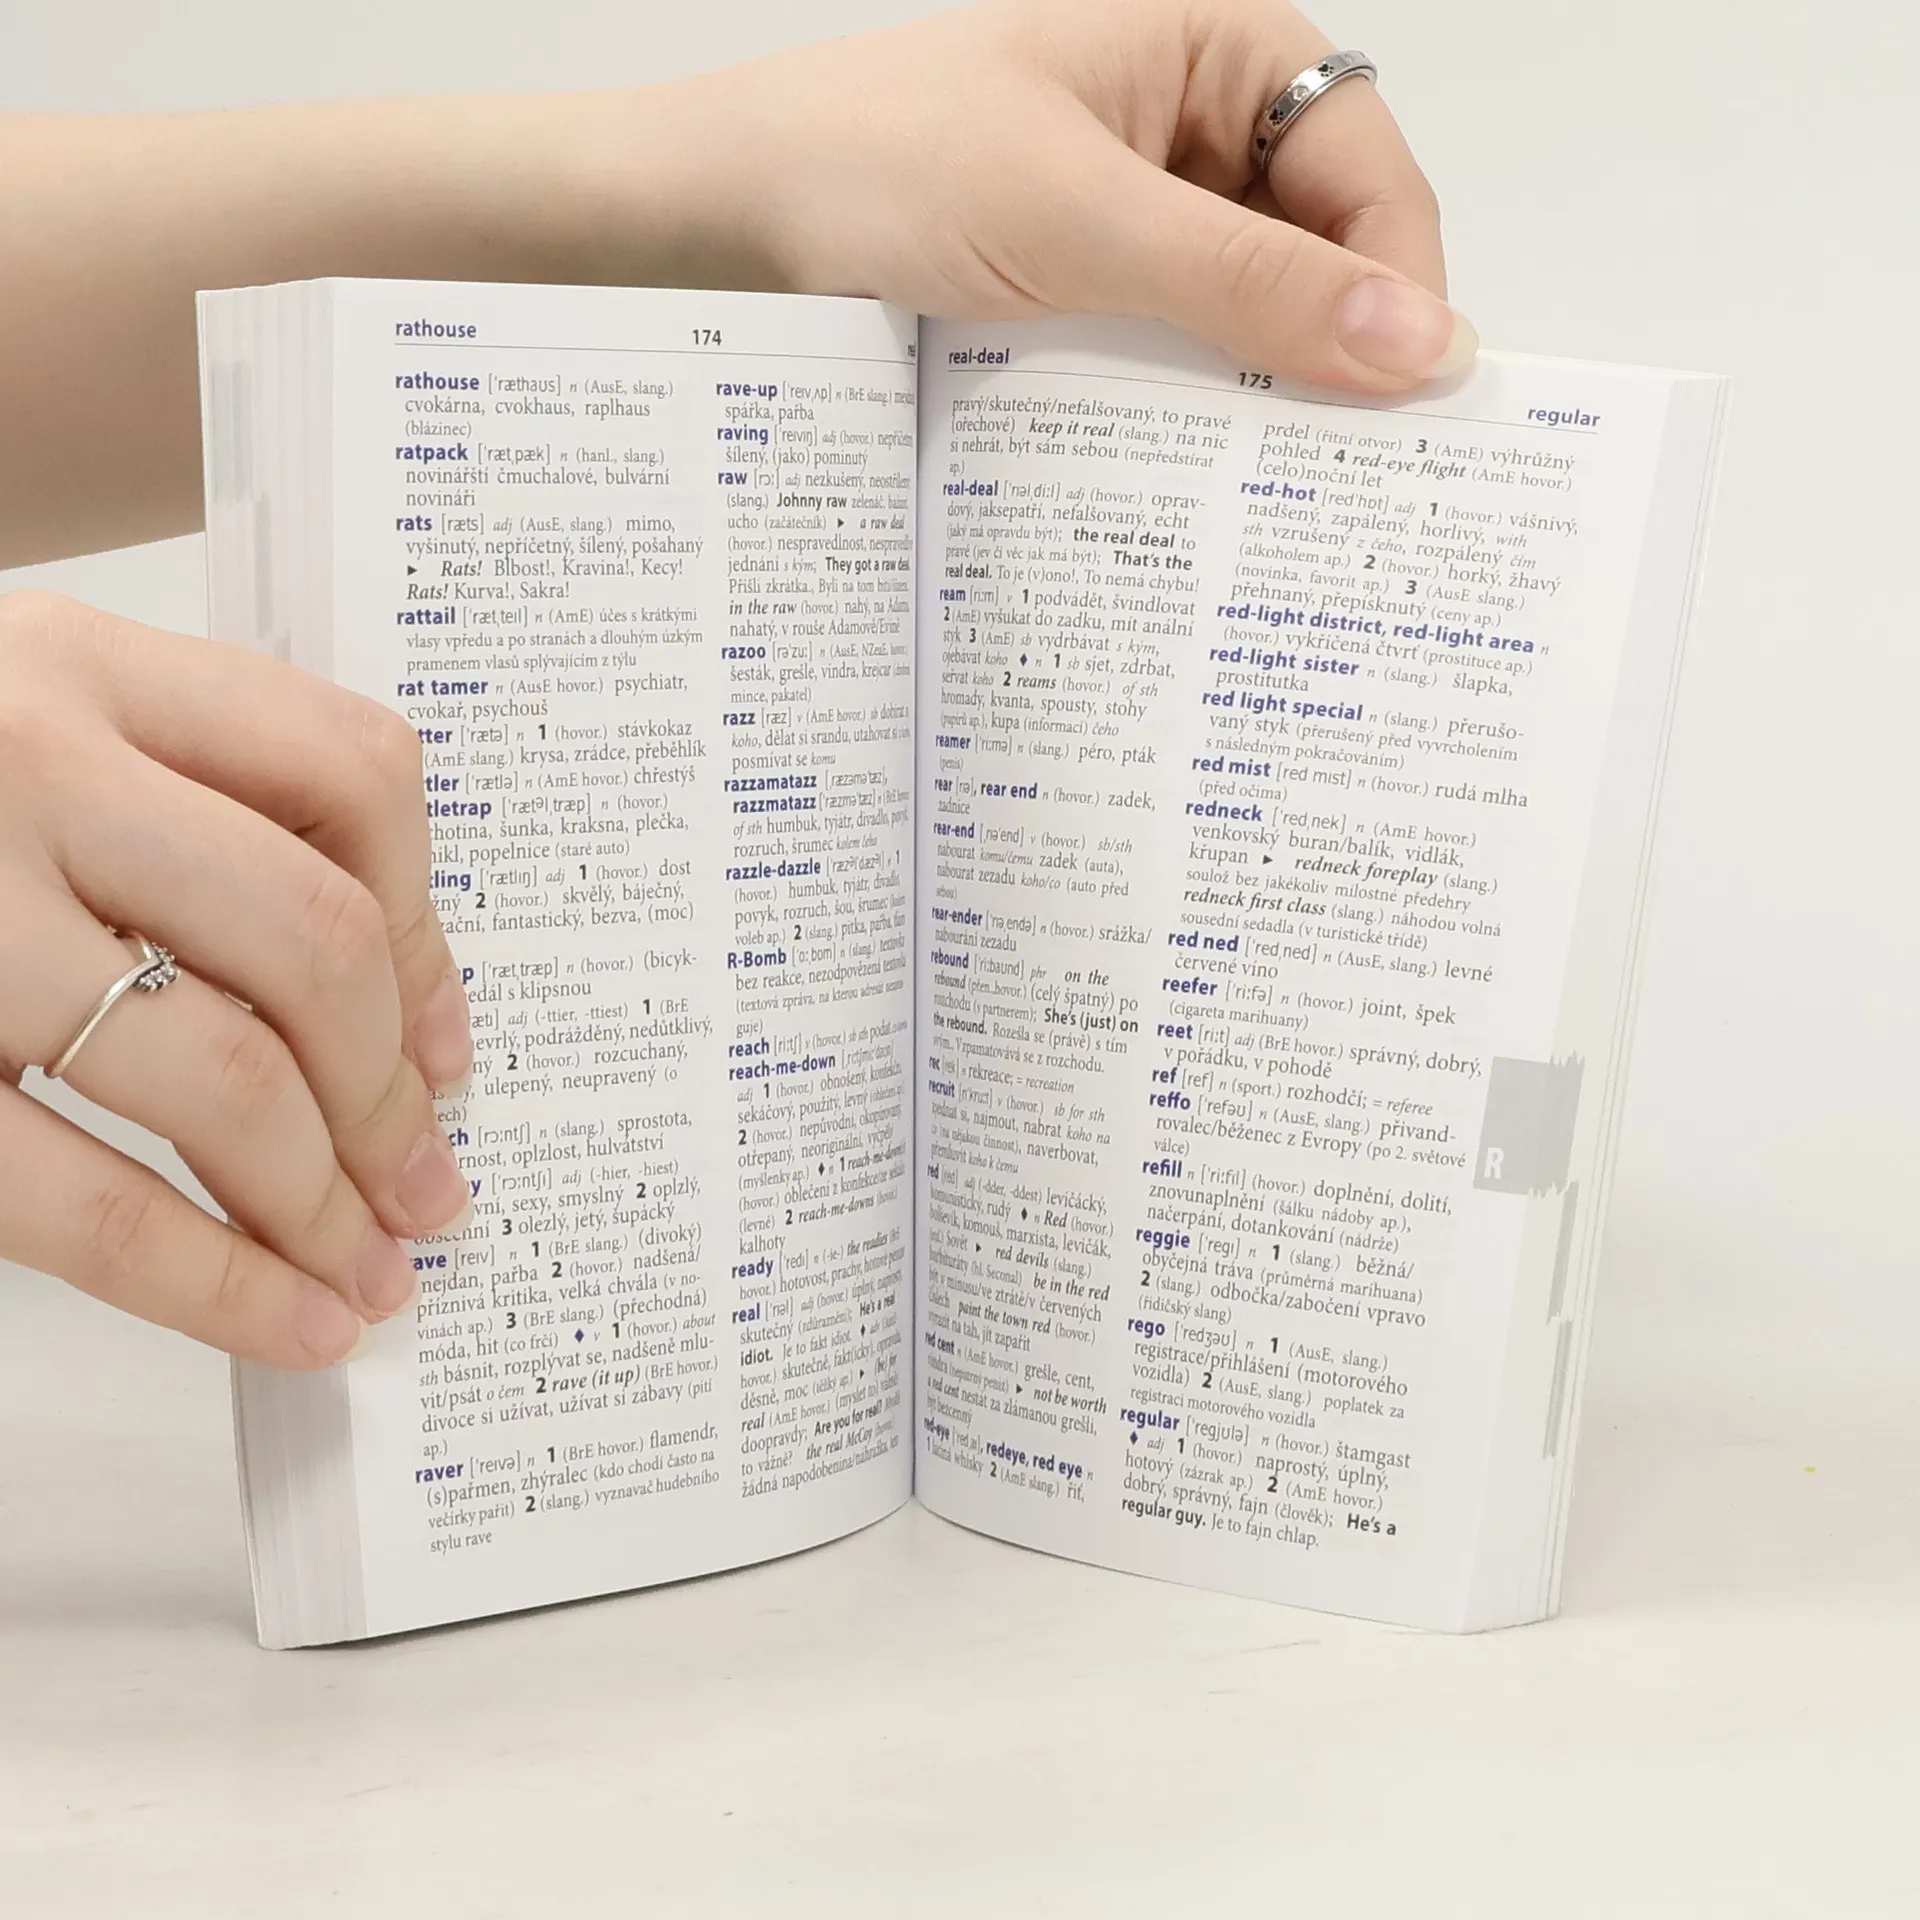 rathouse
174
rathouse ['ræthaʊs] n (AusE, slang.)
cvokárna, cvokhaus, raplhaus
(blázinec)
ratpack ['ræt,pæk] n (hanl., slang.)
novinářští čmuchalové, bulvární
novináři
rats [ræts] adj (AusE, slang.) mimo,
vyšinutý, nepříčetný, šílený, pošahaný
► Rats! Blbost!, Kravina!, Kecy!
Rats! Kurva!, Sakra!
rattail ['ræt,teɪl] n (AmE) účes s krátkými
vlasy vpředu a po stranách a dlouhým úzkým
pramenem vlasů splývajícím z týlu
rat tamer n (AusE hovor.) psychiatr,
cvokař, psychouš
tter ['rætə] n 1 (hovor.) stávkokaz
(AmE slang.) krysa, zrádce, přeběhlík
tler ['rætlə] n (AmE hovor.) chřestýš
tletrap ['rætəl,træp] n (hovor.)
hotina, šunka, kraksna, plečka,
nikl, popelnice (staré auto)
tling ['rætlɪŋ] adj 1 (hovor.) dost
žný 2 (hovor.) skvělý, báječný,
zační, fantastický, bezva, (moc)
p ['ræt,træp] n (hovor.) (bicyk-
edál s klipsnou
ætɪ] adj (-ttier, -ttiest) 1 (BrE
evrlý, podrážděný, nedůtklivý,
ný 2 (hovor.) rozcuchaný,
ulepený, neupravený (o
ech)
ch [rɔ:ntʃ] n (slang.) sprostota,
rnost, oplzlost, hulvátství
y ['rɔ:ntʃɪ] adj (-hier, -hiest)
vní, sexy, smyslný 2 oplzlý,
3 olezlý, jetý, šupácký
ave [reɪv] n 1 (BrE slang.) (divoký)
mejdan, pařba 2 (hovor.) nadšená/
příznivá kritika, velká chvála (v no-
vinách ap.) 3 (BrE slang.) (přechodná)
móda, hit (co frčí) ♦ v 1 (hovor.) about
sth básnit, rozplývat se, nadšeně mlu-
vit/psát o čem 2 rave (it up) (BrE hovor.)
divoce si užívat, užívat si zábavy (pití
ap.)
raver ['reɪvə] n 1 (BrE hovor.) flamendr,
(s)pařmen, zhýralec (kdo chodí často na
večírky pařit) 2 (slang.) vyznavač hudebního
stylu rave
rave-up ['reɪv,ʌp] n (BrE slang.)
spářka, pařba
raving ['reɪvɪŋ] adj (hovor.)
šílený, (jako) pominutý
raw [rɔ:] adj nezkušený,
(slang.) Johnny raw zelenáč,
ucho (začátečník) ► a raw deal
(hovor.) nespravedlnost,
jednání s kým; They got a raw deal.
Přišli zkrátka., Byli na tom
in the raw (hovor.) nahý,
nahatý, v rouše Adamově/Evině
razoo [rə'zu:] n (AusE, NZealE, hovor.)
šesták, grešle, vindra, krejcar
mince, pakatel)
razz [ræz] v (AmE hovor.) sb
koho, dělat si srandu, utahovat si
posmívat se komu
razzamatazz [,ræzəmə'tæz],
razzmatazz ['ræzmə'tæz] n
of sth humbuk, tyjátr, divadlo,
rozruch, šrumec kolem čeho
razzle-dazzle ['ræzəl'dæzəl] n 1
(hovor.) humbuk, tyjátr, divadlo,
povyk, rozruch, šou, šrumec
voleb ap.) 2 (slang.) pitka, pařba,
R-Bomb ['ɑ:,bɒm] n (slang.) textovka
bez reakce, nezodpovězená textovka
(textová zpráva, na kterou adresát
guje)
reach [ri:tʃ] v (hovor.) sb sth podat
reach-me-down
adj 1 (hovor.) obnošený,
sekáčový, použitý, levný
2 (hovor.) nepůvodní, okopírovaný,
otřepaný, neoriginální,
(myšlenky ap.) ♦ n 1 reach-me-down(s)
(hovor.) oblečení z konfekce/ze
(levné) 2 reach-me-downs
kalhoty
ready ['redɪ] n (-ie-) the readies
hovor.) hotovost, prachy,
real ['rɪəl] adj (hovor.) úplný, naprostý,
skutečný (zdůraznění); He's a real
idiot. Je to fakt idiot. ♦ adv
hovor.) skutečně, fakt(icky), opravdu,
děsně, moc (těžký ap.) ► (be) for
real (AmE hovor.) (myslet to) vážně/
doopravdy; Are you for real?
to vážně? the real McCoy (hovor.)
žádná napodobenina/náhražka,
real-deal
175
regular
pravý/skutečný/nefalšovaný, to pravé
(ořechové) keep it real (slang.) na nic
si nehrát, být sám sebou (nepředstírat
ap.)
real-deal ['rɪəl,di:l] adj (hovor.) oprav-
dový, jaksepatří, nefalšovaný, echt
(jaký má opravdu být); the real deal to
pravé (jev či věc jak má být); That's the
real deal. To je (v)ono!, To nemá chybu!
ream [ri:m] v 1 podvádět, švindlovat
2 (AmE) vyšukat do zadku, mít anální
styk 3 (AmE) sb vydrbávat s kým,
ojebávat koho ♦ n 1 sb sjet, zdrbat,
seřvat koho 2 reams (hovor.) of sth
hromady, kvanta, spousty, stohy
(papírů ap.), kupa (informací) čeho
reamer ['ri:mə] n (slang.) péro, pták
(penis)
rear [rɪə], rear end n (hovor.) zadek,
zadnice
rear-end [,rɪə'end] v (hovor.) sb/sth
nabourat komu/čemu zadek (auta),
nabourat zezadu koho/co (auto před
sebou)
rear-ender ['rɪə,endə] n (hovor.) srážka/
nabourání zezadu
rebound ['ri:baʊnd] phr on the
rebound (přen., hovor.) (celý špatný) po
rozchodu (s partnerem); She's (just) on
the rebound. Rozešla se (právě) s tím
svým., Vzpamatovává se z rozchodu.
rec [rek] n rekreace; = recreation
recruit [rɪ'kru:t] v (hovor.) sb for sth
zjednat si, najmout, nabrat koho na
co (na nějakou činnost), naverbovat,
přemluvit koho k čemu
red [red] adj (-dder, -ddest) levičácký,
komunistický, rudý ♦ n Red (hovor.)
bolševik, komouš, marxista, levičák,
Sovět ► red devils (slang.)
barbituráty (hl. Seconal) be in the red
být v minusu/ve ztrátě/v červených
číslech paint the town red (hovor.)
vyrazit na tah, jít zapařit
red cent n (AmE hovor.) grešle, cent,
vindra (nepatrný peníz) ► not be worth
a red cent nestát za zlámanou grešli,
být bezcenný
red-eye ['red,aɪ], redeye, red eye n
1 laciná whisky 2 (AmE slang.) řiť,
prdel (řitní otvor) 3 (AmE) výhrůžný
pohled 4 red-eye flight (AmE hovor.)
(celo)noční let
red-hot [red'hɒt] adj 1 (hovor.) vášnivý,
nadšený, zapálený, horlivý, with
sth vzrušený z čeho, rozpálený čím
(alkoholem ap.) 2 (hovor.) horký, žhavý
(novinka, favorit ap.) 3 (AusE slang.)
přehnaný, přepísknutý (ceny ap.)
red-light district, red-light area n
(hovor.) vykřičená čtvrť (prostituce ap.)
red-light sister n (slang.) šlapka,
prostitutka
red light special n (slang.) přerušo-
vaný styk (přerušený před vyvrcholením
s následným pokračováním)
red mist [red mɪst] n (hovor.) rudá mlha
(před očima)
redneck ['red,nek] n (AmE hovor.)
venkovský buran/balík, vidlák,
křupan ► redneck foreplay (slang.)
soulož bez jakékoliv milostné předehry
redneck first class (slang.) náhodou volná
sousední sedadla (v turistické třídě)
red ned ['red,ned] n (AusE, slang.) levné
červené víno
reefer ['ri:fə] n (hovor.) joint, špek
(cigareta marihuany)
reet [ri:t] adj (BrE hovor.) správný, dobrý,
v pořádku, v pohodě
ref [ref] n (sport.) rozhodčí; = referee
reffo ['refəʊ] n (AusE, slang.) přivand-
rovalec/běženec z Evropy (po 2. světové
válce)
refill n ['ri:fɪl] (hovor.) doplnění, dolití,
znovunaplnění (šálku nádoby ap.),
načerpání, dotankování (nádrže)
reggie ['regɪ] n 1 (slang.) běžná/
obyčejná tráva (průměrná marihuana)
2 (slang.) odbočka/zabočení vpravo
(řidičský slang)
rego ['redʒəʊ] n 1 (AusE, slang.)
registrace/přihlášení (motorového
vozidla) 2 (AusE, slang.) poplatek za
registraci motorového vozidla
regular ['regjʊlə] n (hovor.) štamgast
♦ adj 1 (hovor.) naprostý, úplný,
hotový (zázrak ap.) 2 (AmE hovor.)
dobrý, správný, fajn (člověk); He's a
regular guy. Je to fajn chlap.
R